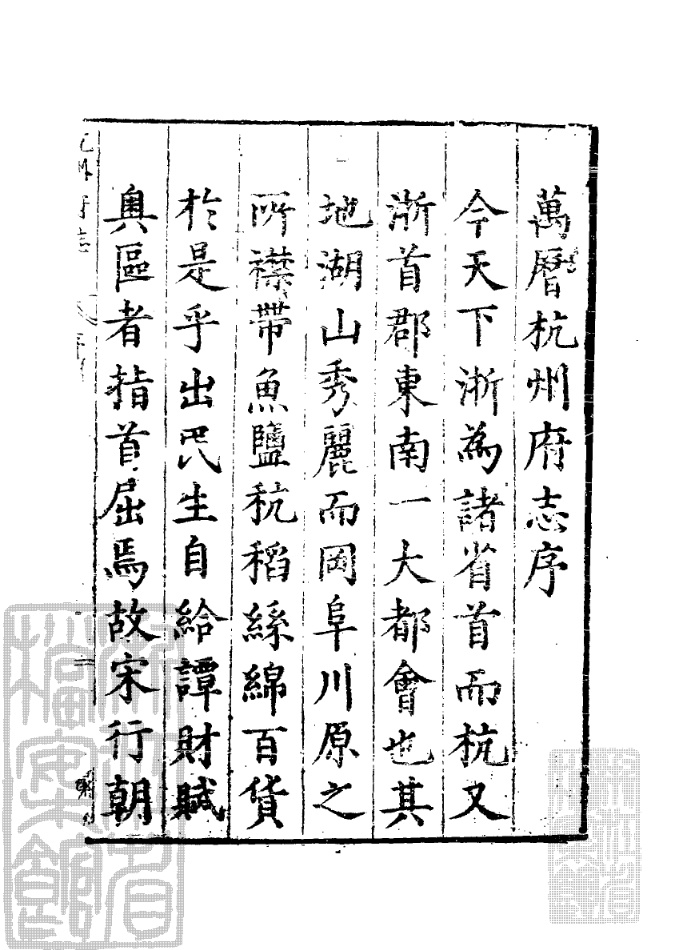 萬曆杭州府志序
今天下浙為諸省首而杭又
浙首郡東南一大都會也其
地湖山秀麗而岡阜川原之
所襟帶魚鹽秔稻絲綿百貨
於是乎出民生自給譚財賦
奧區者指首屈焉故宋行朝
浙江省檔案館
浙江省檔案館